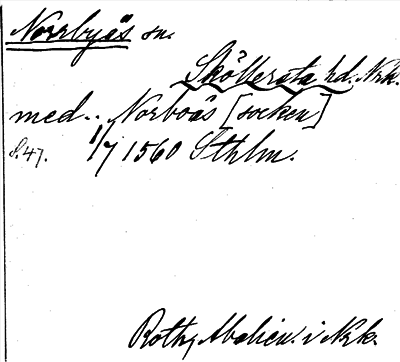 Norrbyås sn.
Sköllersta hd. Nrk.
med. Norboås [socken]
s. 47. 1/7 1560 Sthlm.
Roth, Abelien. i Nrk.